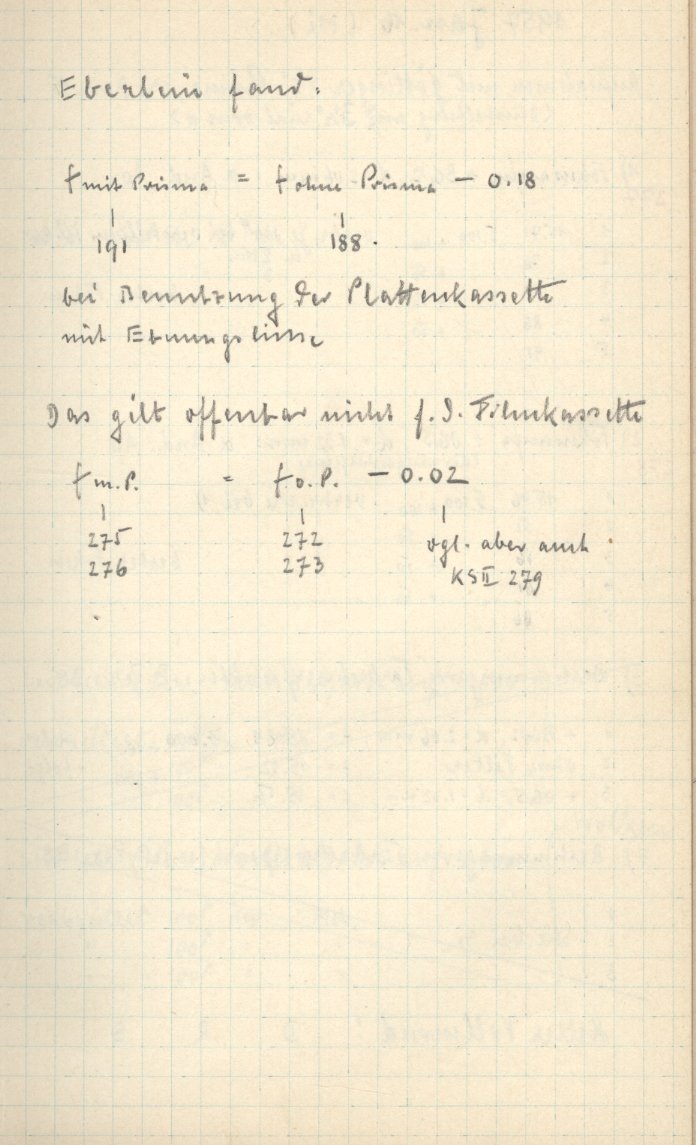 Eberlein fand:
f mit Prisma = f ohne Prisma – 0.18
191 188.
bei Benutzung der Plattenkassette
mit Ebnungslinse
Das gilt offenbar nicht f. d. Filmkassette
f m.P. = f o.P. – 0.02
275 272 vgl. aber auch
276 273 KS II 279